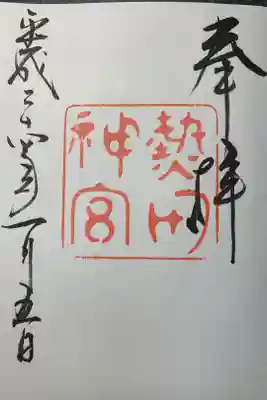 奉拝
熱田
神宮
平成二十年一月五日